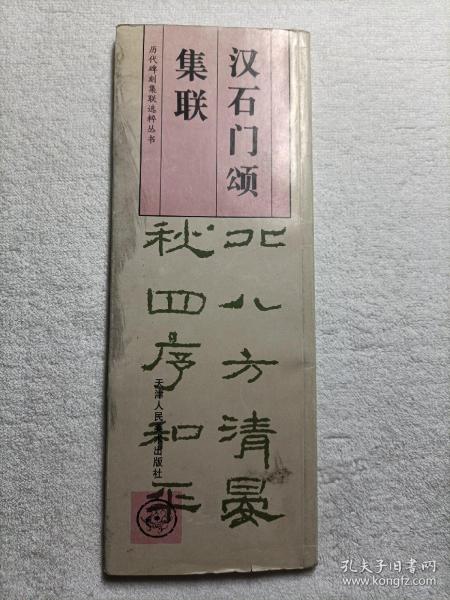 汉石门颂
集联
历代碑刻集联选粹丛书
北八方清晏
秋四序和平
天津人民美术出版社
孔夫子旧书网
www.kongfz.com